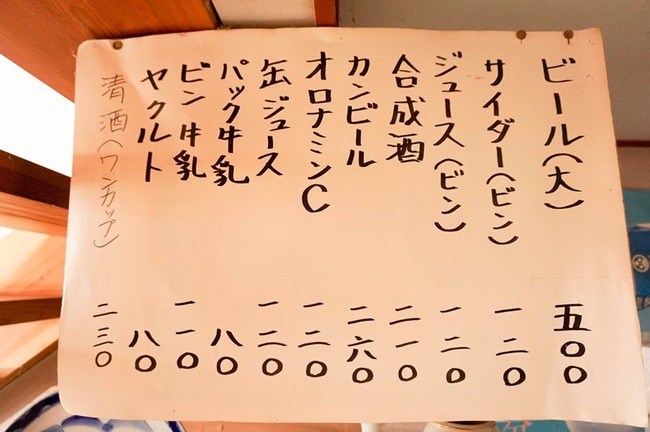 ビール(大) 五〇〇
サイダー(ビン) 一二〇
ジュース(ビン) 一二〇
合成酒 二一〇
カンビール 二六〇
オロナミンC 一二〇
缶ジュース 一二〇
パック牛乳 八〇
ビン牛乳 一一〇
ヤクルト 八〇
清酒(ワンカップ) 二三〇